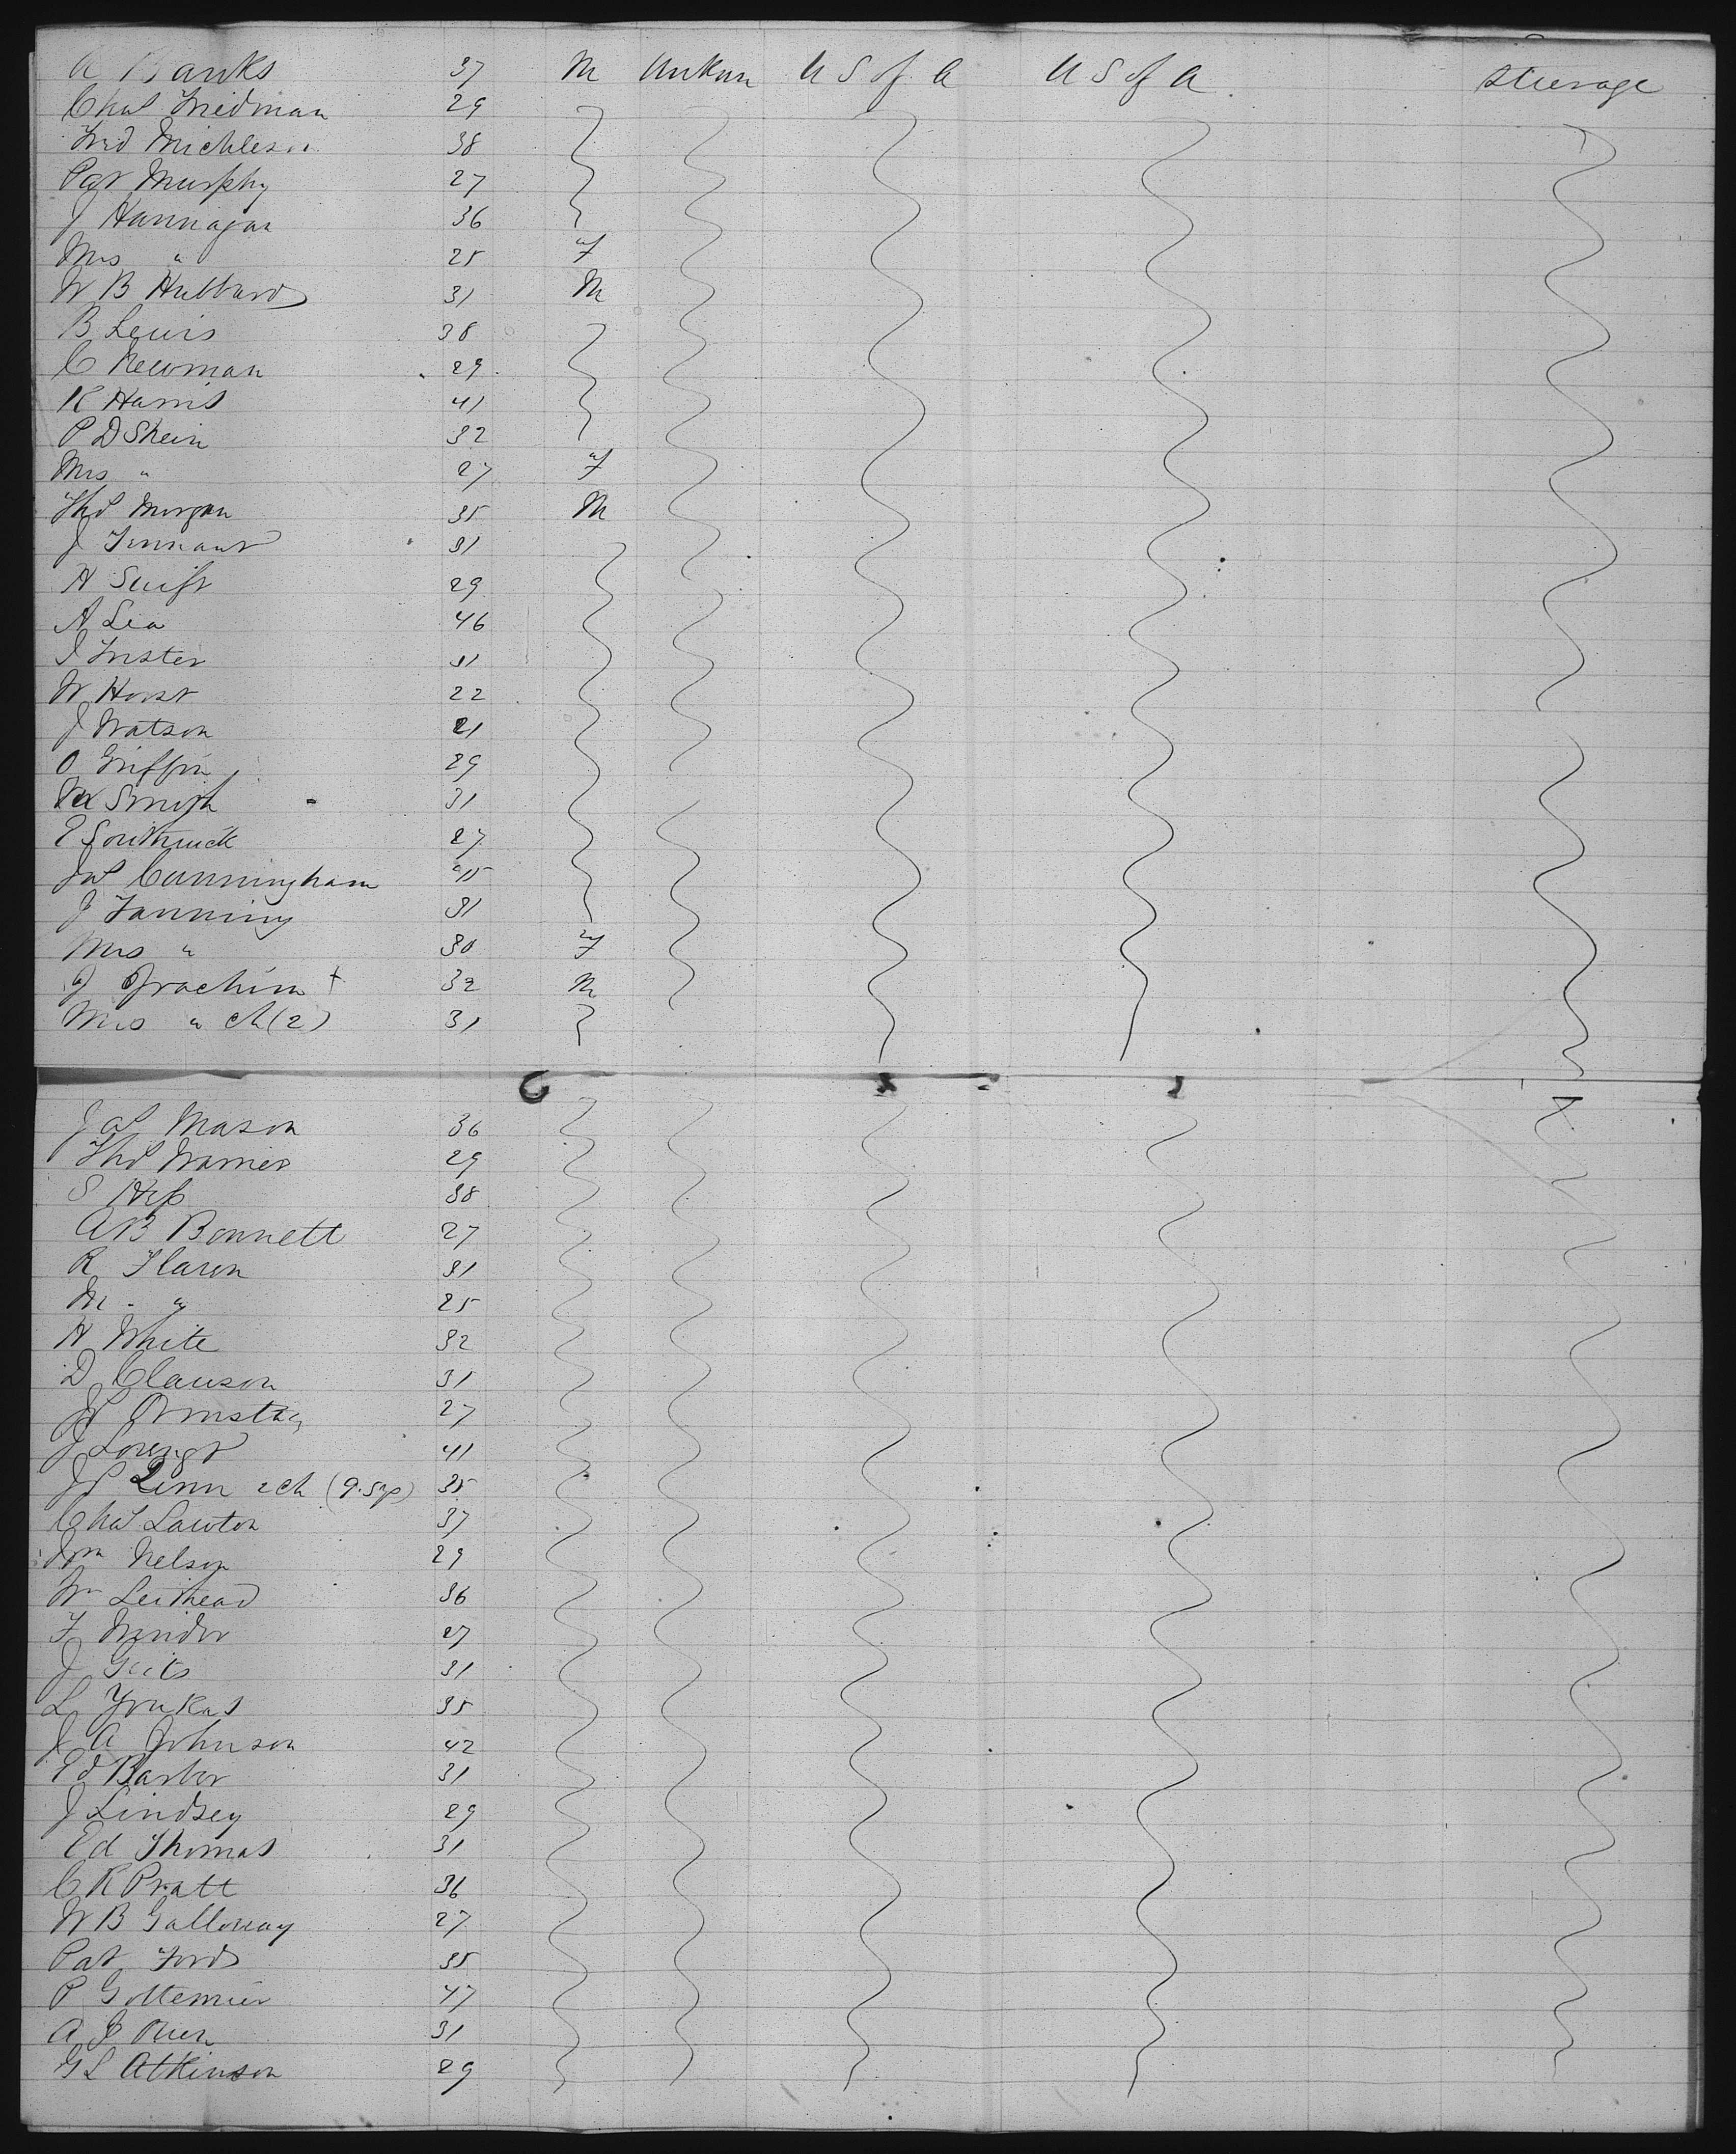 A Banks 37 M Unknn U S of A U S of A Steerage
Chas Friedman 29
Fred Michleson 38
Pat Murphy 27
J Hannagan 36
Mrs " 25 F
W B Hubbard 31 M
B Lewis 38
C Newman 29
R Harris 41
P D Shein 32
Mrs " 27 F
Thos Morgan 35 M
J Tennant 31
H Swift 29
A Lea 46
J Frister 31
W Horst 22
J Watson 21
O Griffin 29
Smith 31
E Southwick 27
Jas Cunningham 45
J Fanning 31
Mrs " 30 F
J Joachim + 32 M
Mrs " ch (2) 31
Jas Mason 36
Thos Warner 29
S Hep 38
A B Bonnett 27
R Flaren 31
M " 25
H White 32
D Clauson 31
27
J 41
Linn 2 ch 35
Chas Lawton 37
Nelson 29
Wm Leithead 36
F Winder 27
J Geits 31
L Youkas 35
J A Johnson 42
Ed Barber 31
J Lindsey 29
Ed Thomas 31
C R Pratt 36
W B Galloway 27
Pat Ford 35
P Gottemier 47
A J 31
G L Atkinson 29